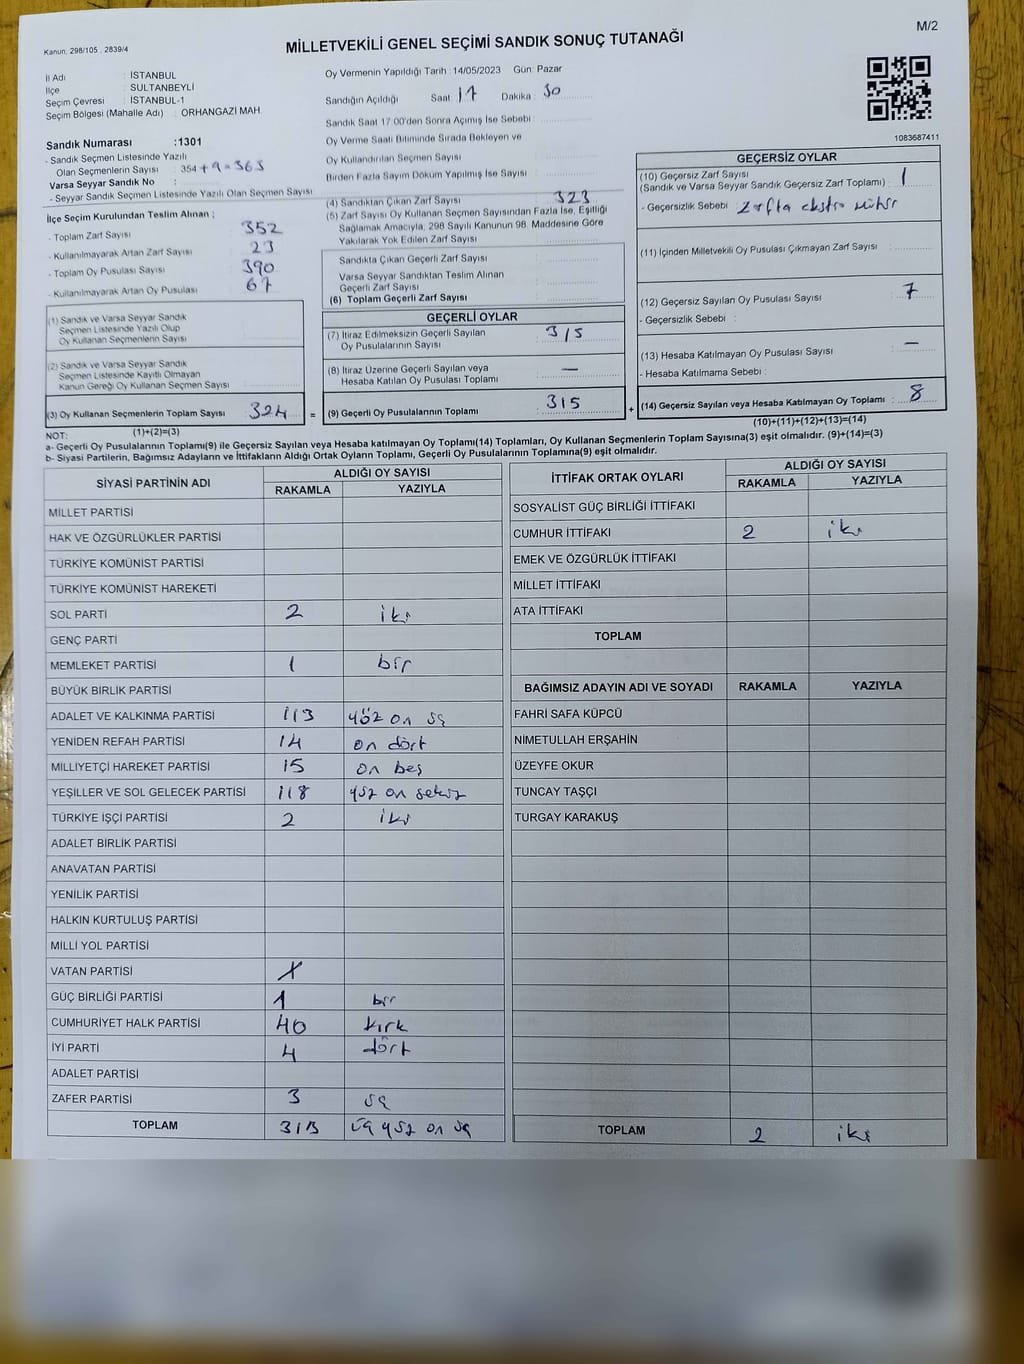 M/2
Kanun, 298/105 , 2839/4
MİLLETVEKİLİ GENEL SEÇİMİ SANDIK SONUÇ TUTANAĞI
İl Adı : İSTANBUL
İlçe : SULTANBEYLİ
Seçim Çevresi : İSTANBUL-1
Seçim Bölgesi (Mahalle Adı) : ORHANGAZİ MAH.
Sandık Numarası :1301
- Sandık Seçmen Listesinde Yazılı
Olan Seçmenlerin Sayısı : 354 + 9 = 363
Varsa Seyyar Sandık No :
- Seyyar Sandık Seçmen Listesinde Yazılı Olan Seçmen Sayısı :
İlçe Seçim Kurulundan Teslim Alınan ;
- Toplam Zarf Sayısı : 352
- Kullanılmayarak Artan Zarf Sayısı : 23
- Toplam Oy Pusulası Sayısı : 390
- Kullanılmayarak Artan Oy Pusulası : 67
(1) Sandık ve Varsa Seyyar Sandık
Seçmen Listesinde Yazılı Olup
Oy Kullanan Seçmenlerin Sayısı :
(2) Sandık ve Varsa Seyyar Sandık
Seçmen Listesinde Kayıtlı Olmayan
Kanun Gereği Oy Kullanan Seçmen Sayısı :
(3) Oy Kullanan Seçmenlerin Toplam Sayısı : 324 =
(1)+(2)=(3)
Oy Vermenin Yapıldığı Tarih : 14/05/2023 Gün: Pazar
Sandığın Açıldığı Saat : 17 Dakika : 30
Sandık Saat 17:00'den Sonra Açımış İse Sebebi :
Oy Verme Saati Bitiminde Sırada Bekleyen ve
Oy Kullandırılan Seçmen Sayısı :
Birden Fazla Sayım Döküm Yapılmış İse Sayısı :
(4) Sandıktan Çıkan Zarf Sayısı : 323
(5) Zarf Sayısı Oy Kullanan Seçmen Sayısından Fazla İse, Eşitliği
Sağlamak Amacıyla, 298 Sayılı Kanunun 98. Maddesine Göre
Yakılarak Yok Edilen Zarf Sayısı :
Sandıkta Çıkan Geçerli Zarf Sayısı :
Varsa Seyyar Sandıktan Teslim Alınan
Geçerli Zarf Sayısı :
(6) Toplam Geçerli Zarf Sayısı :
GEÇERLİ OYLAR
(7) İtiraz Edilmeksizin Geçerli Sayılan
Oy Pusulalarının Sayısı : 315
(8) İtiraz Üzerine Geçerli Sayılan veya
Hesaba Katılan Oy Pusulası Toplamı : —
(9) Geçerli Oy Pusulalarının Toplamı : 315 +
1083687411
GEÇERSİZ OYLAR
(10) Geçersiz Zarf Sayısı
(Sandık ve Varsa Seyyar Sandık Geçersiz Zarf Toplamı) : 1
- Geçersizlik Sebebi : Zarfta ekstra mühür
(11) İçinden Milletvekili Oy Pusulası Çıkmayan Zarf Sayısı :
(12) Geçersiz Sayılan Oy Pusulası Sayısı : 7
- Geçersizlik Sebebi :
(13) Hesaba Katılmayan Oy Pusulası Sayısı : —
- Hesaba Katılmama Sebebi :
(14) Geçersiz Sayılan veya Hesaba Katılmayan Oy Toplamı : 8
(10)+(11)+(12)+(13)=(14)
NOT:
a- Geçerli Oy Pusulalarının Toplamı(9) ile Geçersiz Sayılan veya Hesaba katılmayan Oy Toplamı(14) Toplamları, Oy Kullanan Seçmenlerin Toplam Sayısına(3) eşit olmalıdır. (9)+(14)=(3)
b- Siyasi Partilerin, Bağımsız Adayların ve İttifakların Aldığı Ortak Oyların Toplamı, Geçerli Oy Pusulalarının Toplamına(9) eşit olmalıdır.
SİYASİ PARTİNİN ADI ALDIĞI OY SAYISI
RAKAMLA YAZIYLA
MİLLET PARTİSİ
HAK VE ÖZGÜRLÜKLER PARTİSİ
TÜRKİYE KOMÜNİST PARTİSİ
TÜRKİYE KOMÜNİST HAREKETİ
SOL PARTİ 2 iki
GENÇ PARTİ
MEMLEKET PARTİSİ 1 bir
BÜYÜK BİRLİK PARTİSİ
ADALET VE KALKINMA PARTİSİ 113 yüz on üç
YENİDEN REFAH PARTİSİ 14 on dört
MİLLİYETÇİ HAREKET PARTİSİ 15 on beş
YEŞİLLER VE SOL GELECEK PARTİSİ 118 yüz on sekiz
TÜRKİYE İŞÇİ PARTİSİ 2 iki
ADALET BİRLİK PARTİSİ
ANAVATAN PARTİSİ
YENİLİK PARTİSİ
HALKIN KURTULUŞ PARTİSİ
MİLLİ YOL PARTİSİ
VATAN PARTİSİ
GÜÇ BİRLİĞİ PARTİSİ 1 bir
CUMHURİYET HALK PARTİSİ 40 kırk
İYİ PARTİ 4 dört
ADALET PARTİSİ
ZAFER PARTİSİ 3 üç
TOPLAM 313 üç yüz on üç
İTTİFAK ORTAK OYLARI ALDIĞI OY SAYISI
RAKAMLA YAZIYLA
SOSYALİST GÜÇ BİRLİĞİ İTTİFAKI
CUMHUR İTTİFAKI 2 iki
EMEK VE ÖZGÜRLÜK İTTİFAKI
MİLLET İTTİFAKI
ATA İTTİFAKI
TOPLAM
BAĞIMSIZ ADAYIN ADI VE SOYADI RAKAMLA YAZIYLA
FAHRİ SAFA KÜPCÜ
NİMETULLAH ERŞAHİN
ÜZEYFE OKUR
TUNCAY TAŞÇI
TURGAY KARAKUŞ
TOPLAM 2 iki